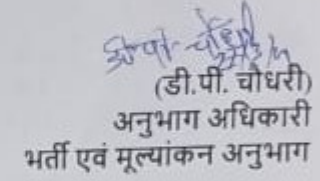 (डी.पी. चौधरी)
अनुभाग अधिकारी
भर्ती एवं मूल्यांकन अनुभाग